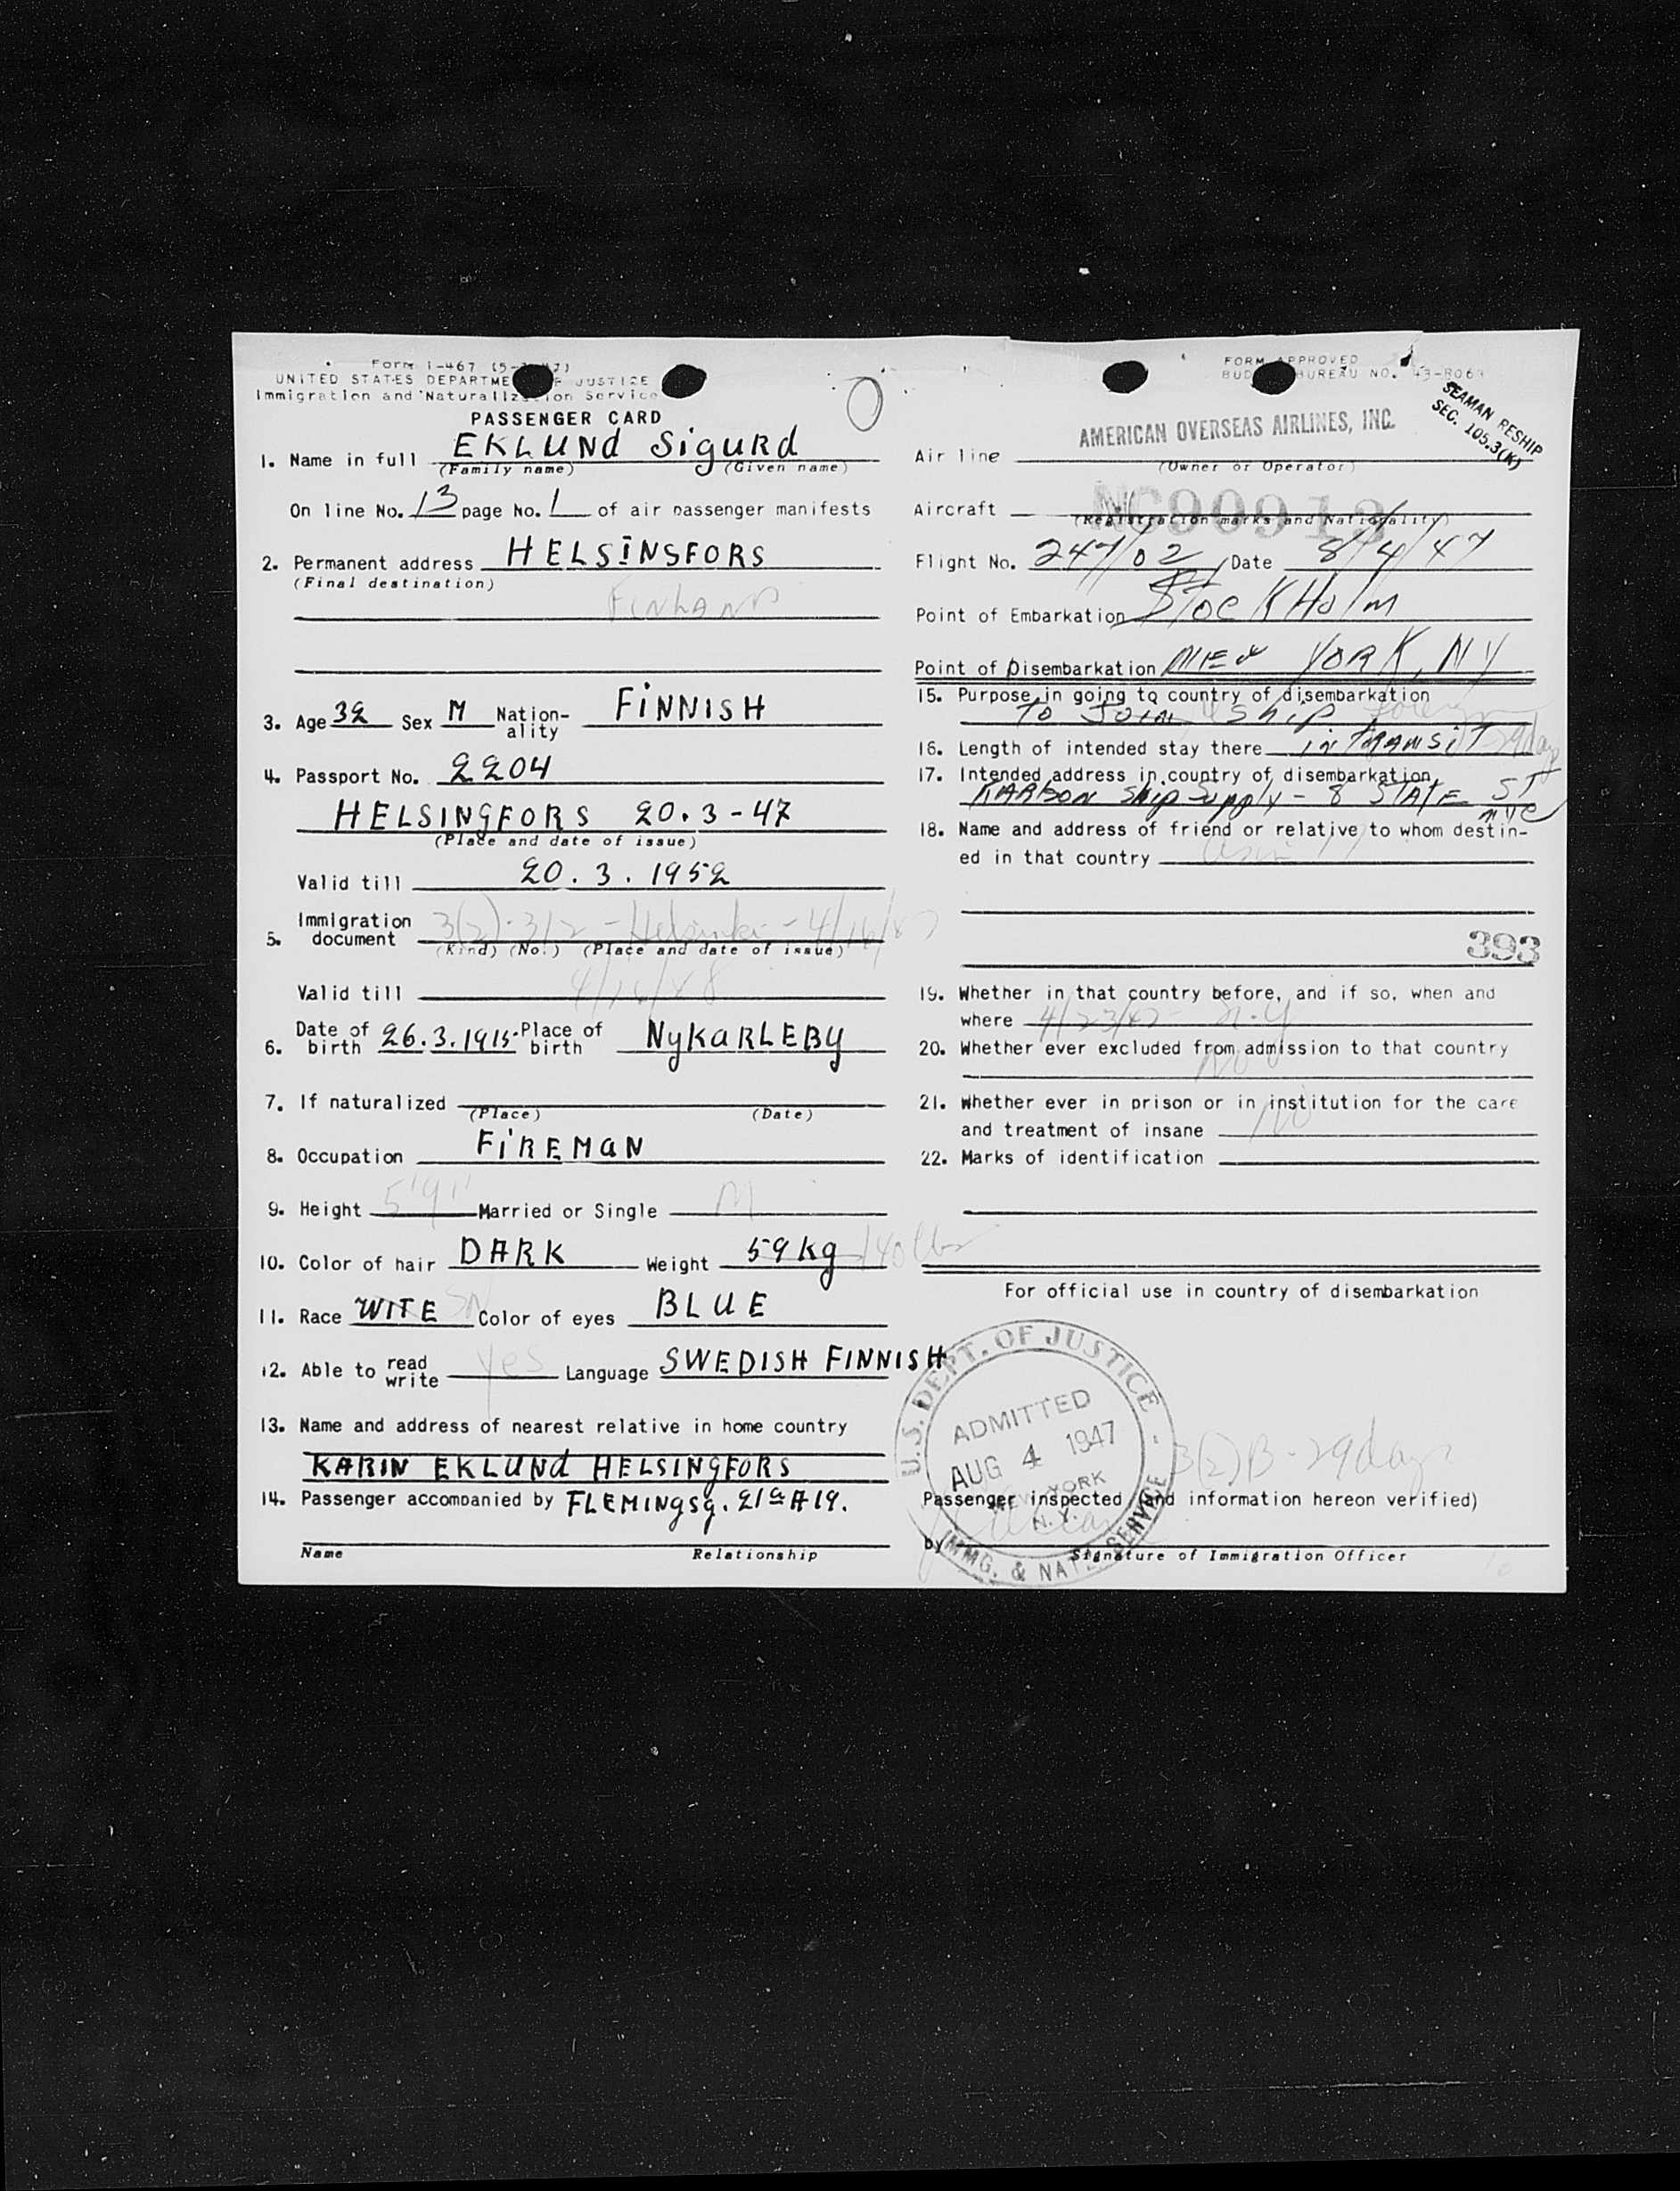 Form I-467
UNITED STATES DEPARTMENT OF JUSTICE
Immigration and Naturalization Service
PASSENGER CARD
1. Name in full EKLUNd SiguRd
(Family name) (Given name)
On line No. 13 page No. 1 of air passenger manifests
2. Permanent address HELSINSFORS
(Final destination)
FINLAND
3. Age 32 Sex M Nationality FiNNiSH
4. Passport No. 2204
HELSINGFORS 20.3-47
(Place and date of issue)
Valid till 20.3.1952
5. Immigration document 3(2)-312 - Helsinki - 4/16/47
(Kind) (No.) (Place and date of issue)
Valid till 4/16/48
6. Date of birth 26.3.1915. Place of birth NyKaRLEBy
7. If naturalized
(Place) (Date)
8. Occupation FiREMaN
9. Height 5'9" Married or Single M
10. Color of hair DARK Weight 59 kg 140 lbs
11. Race WITE Color of eyes BLUE
12. Able to read write yes Language SWEDISH FINNISH
13. Name and address of nearest relative in home country
KARIN EKLUNd HELSINGFORS
14. Passenger accompanied by FLEMINGSg. 21 a A 19.
Name Relationship
FORM APPROVED
BUDGET BUREAU NO. 43-R063
SEAMAN RESHIP
SEC. 105.3(K)
AMERICAN OVERSEAS AIRLINES, INC.
Air line
(Owner or Operator)
Aircraft NC90913
(Registration marks and Nationality)
Flight No. 247/02 Date 8/4/47
Point of Embarkation StocKHolm
Point of Disembarkation NEW YORK, NY
15. Purpose in going to country of disembarkation
To Join ship foreign
16. Length of intended stay there in TRANSiT 29 days
17. Intended address in country of disembarkation
Ship Supply - 8 STATE ST
NYC
18. Name and address of friend or relative to whom destin-
ed in that country
393
19. Whether in that country before, and if so, when and
where 4/23/47 - N.Y
20. Whether ever excluded from admission to that country
No
21. Whether ever in prison or in institution for the care
and treatment of insane No
22. Marks of identification
For official use in country of disembarkation
U.S. DEPT. OF JUSTICE
ADMITTED
AUG 4 1947
NEW YORK
N.Y.
IMMG. & NATZ. SERVICE
3(2)B - 29 days
Passenger inspected (and information hereon verified)
by
Signature of Immigration Officer